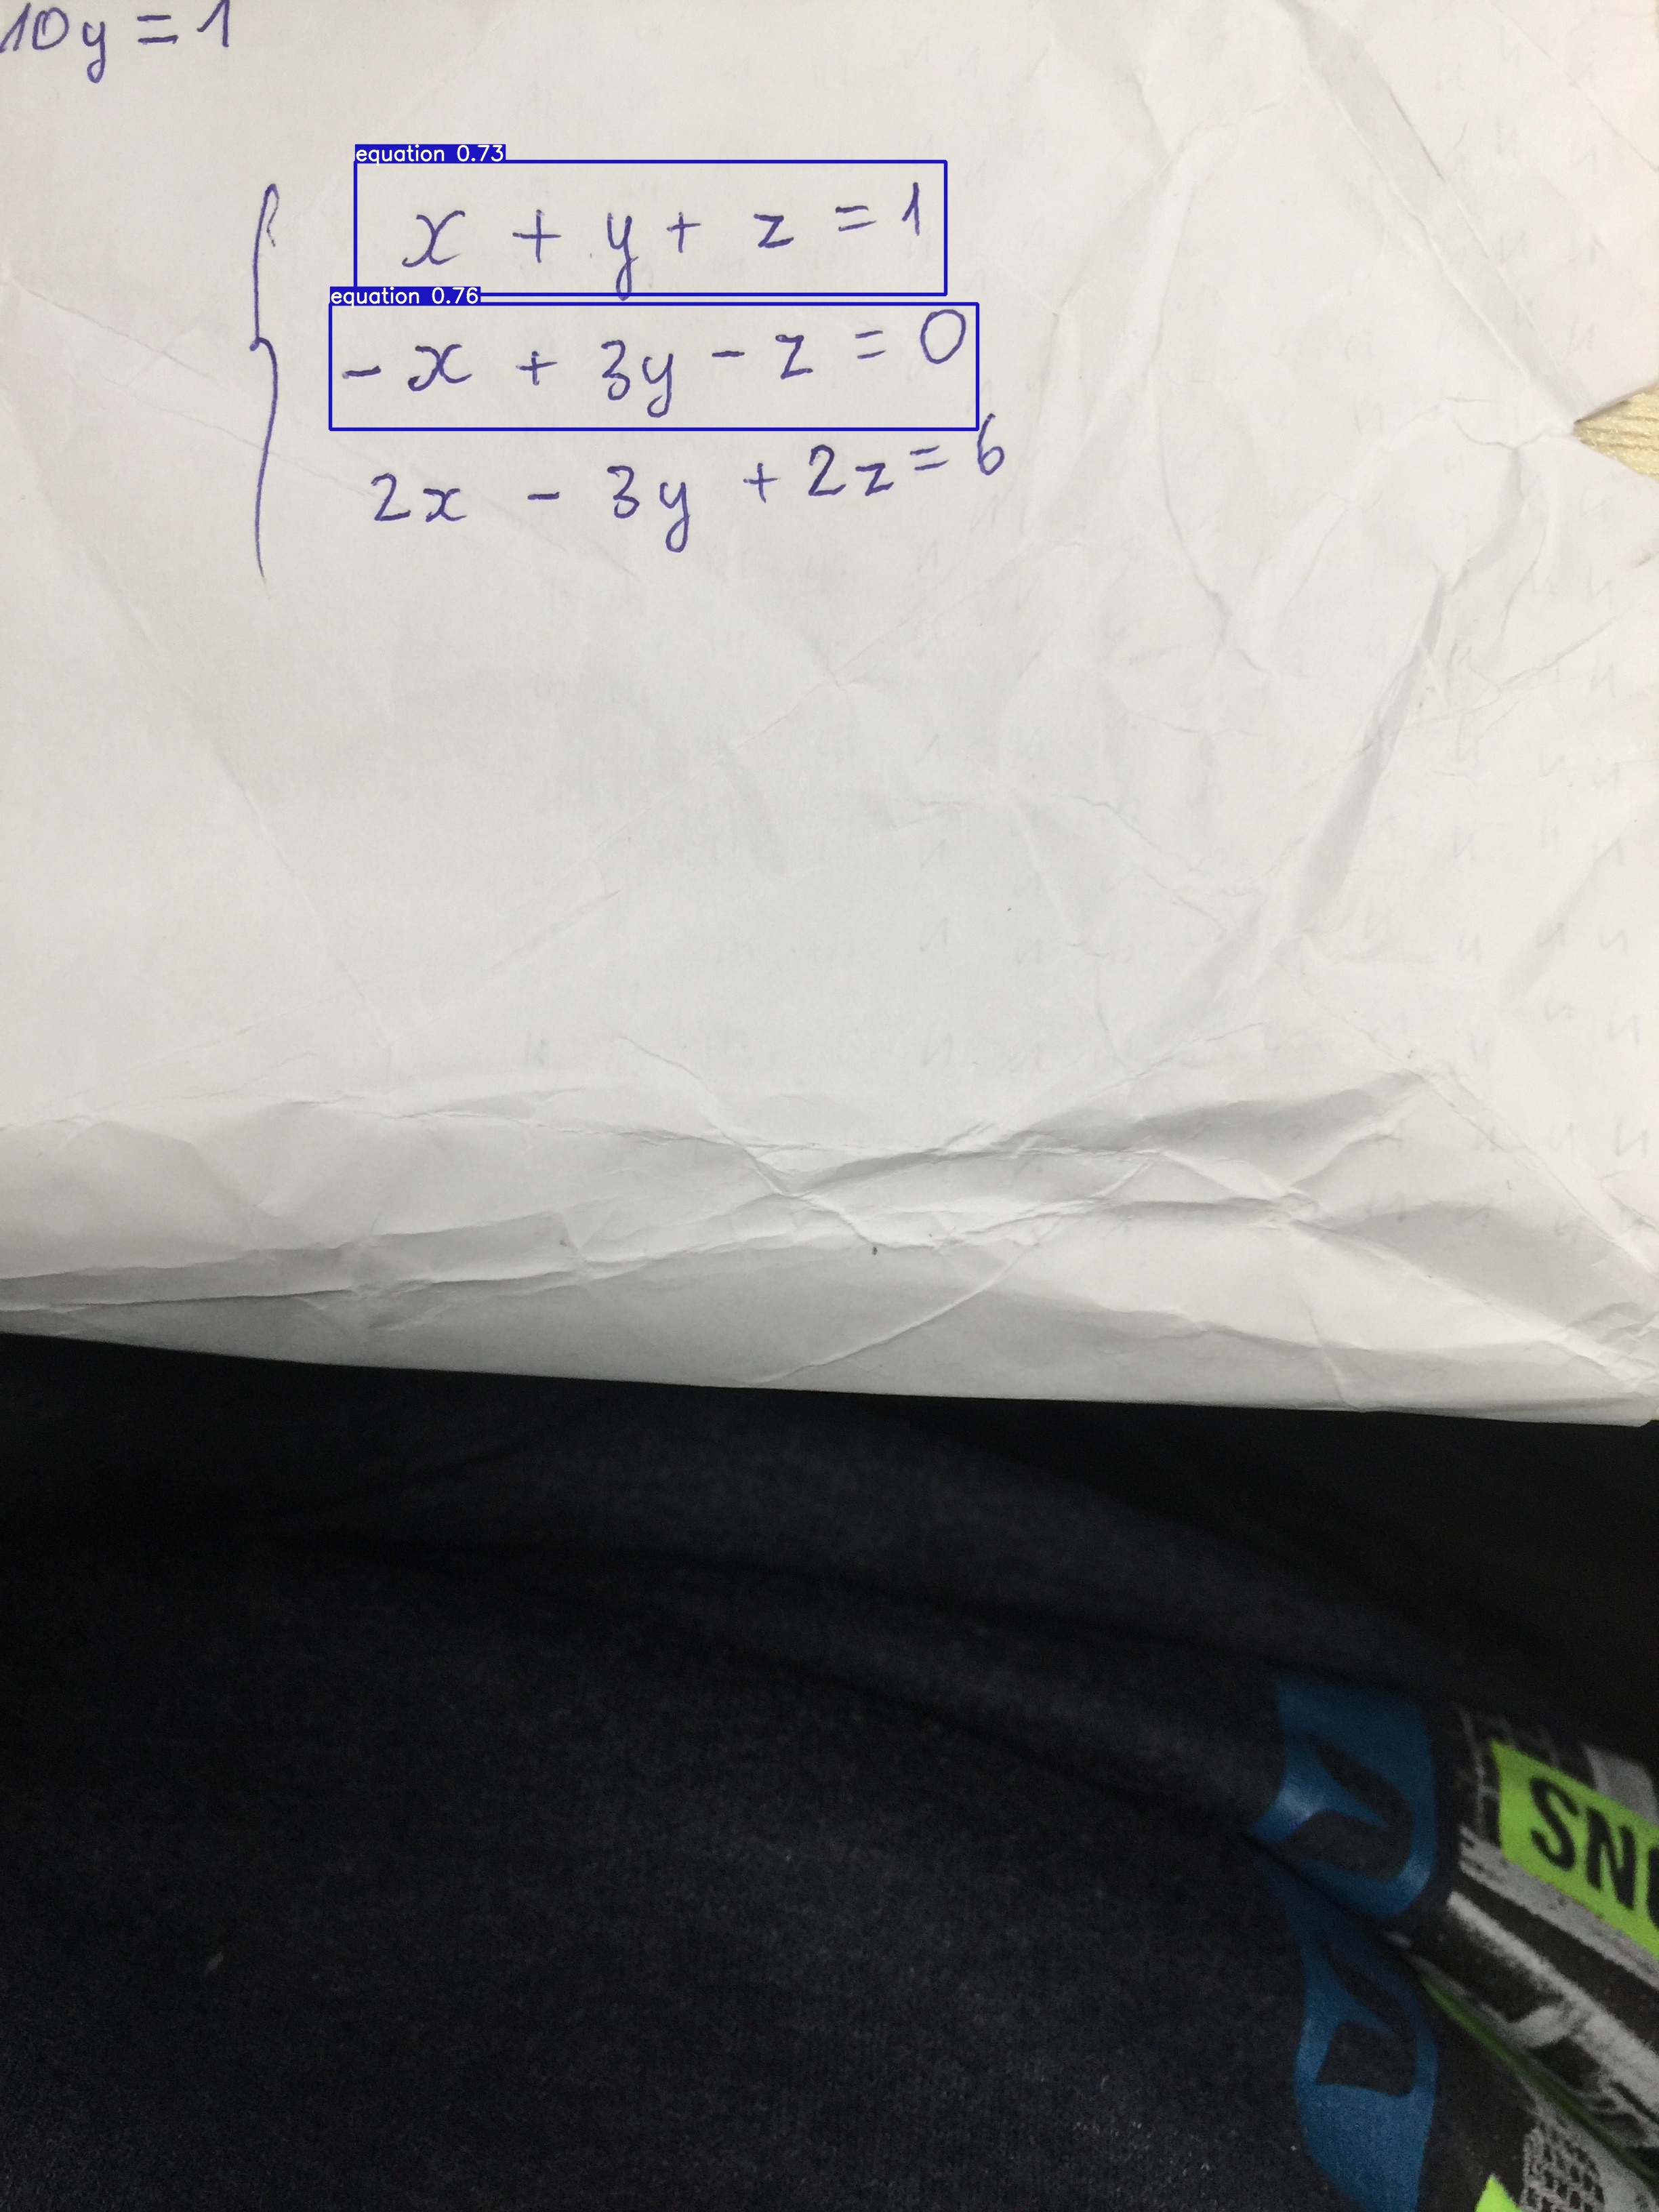 10y = 1
equation 0.73
x + y + z = 1
equation 0.76
- x + 3y - z = 0
2x - 3y + 2z = 6